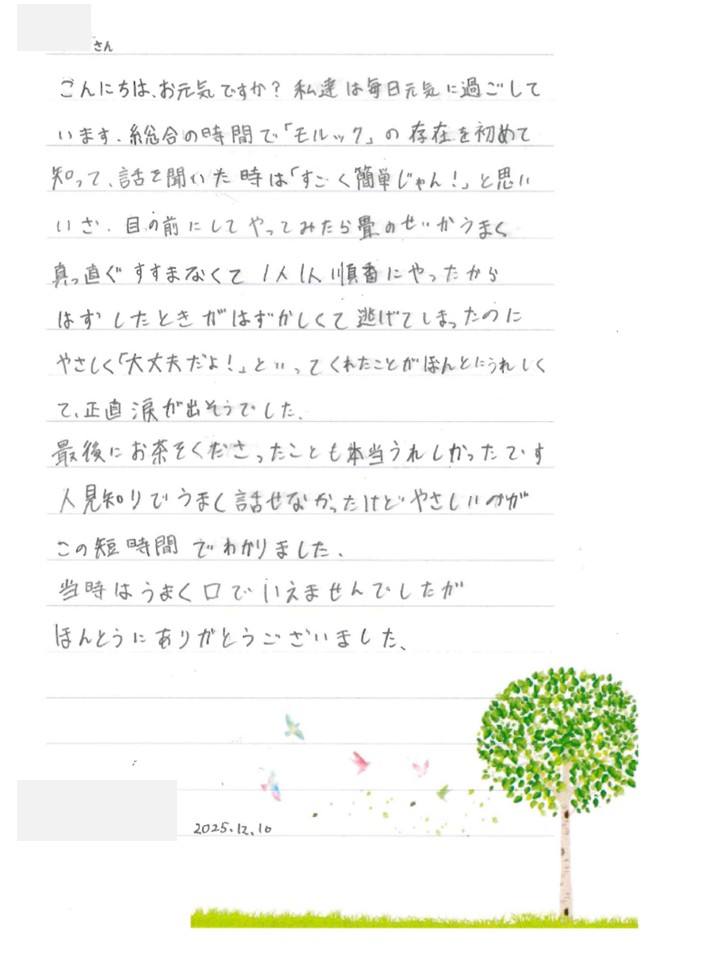 さん
こんにちは、お元気ですか？私達は毎日元気に過ごして
います。総合の時間で「モルック」の存在を初めて
知って、話を聞いた時は「すごく簡単じゃん！」と思い
いざ、目の前にしてやってみたら畳のせいかうまく
真っ直ぐすすまなくて1人1人順番にやったから
はずしたときがはずかしくて逃げてしまったのに
やさしく「大丈夫だよ！」といってくれたことがほんとにうれしく
て、正直涙が出そうでした。
最後にお茶をくださったことも本当うれしかったです
人見知りでうまく話せなかったけどやさしいのが
この短時間でわかりました。
当時はうまく口でいえませんでしたが
ほんとうにありがとうございました。
2025.12.10